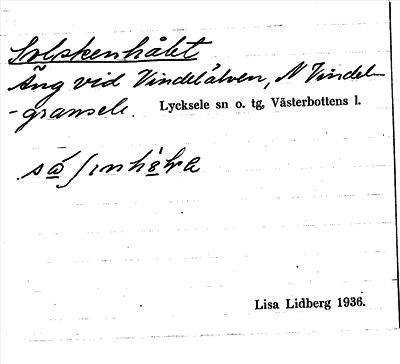 Solskenhålet
Äng vid Vindelälven, N Vindel-
-gransele. Lycksele sn o. tg, Västerbottens l.
Lisa Lidberg 1936.